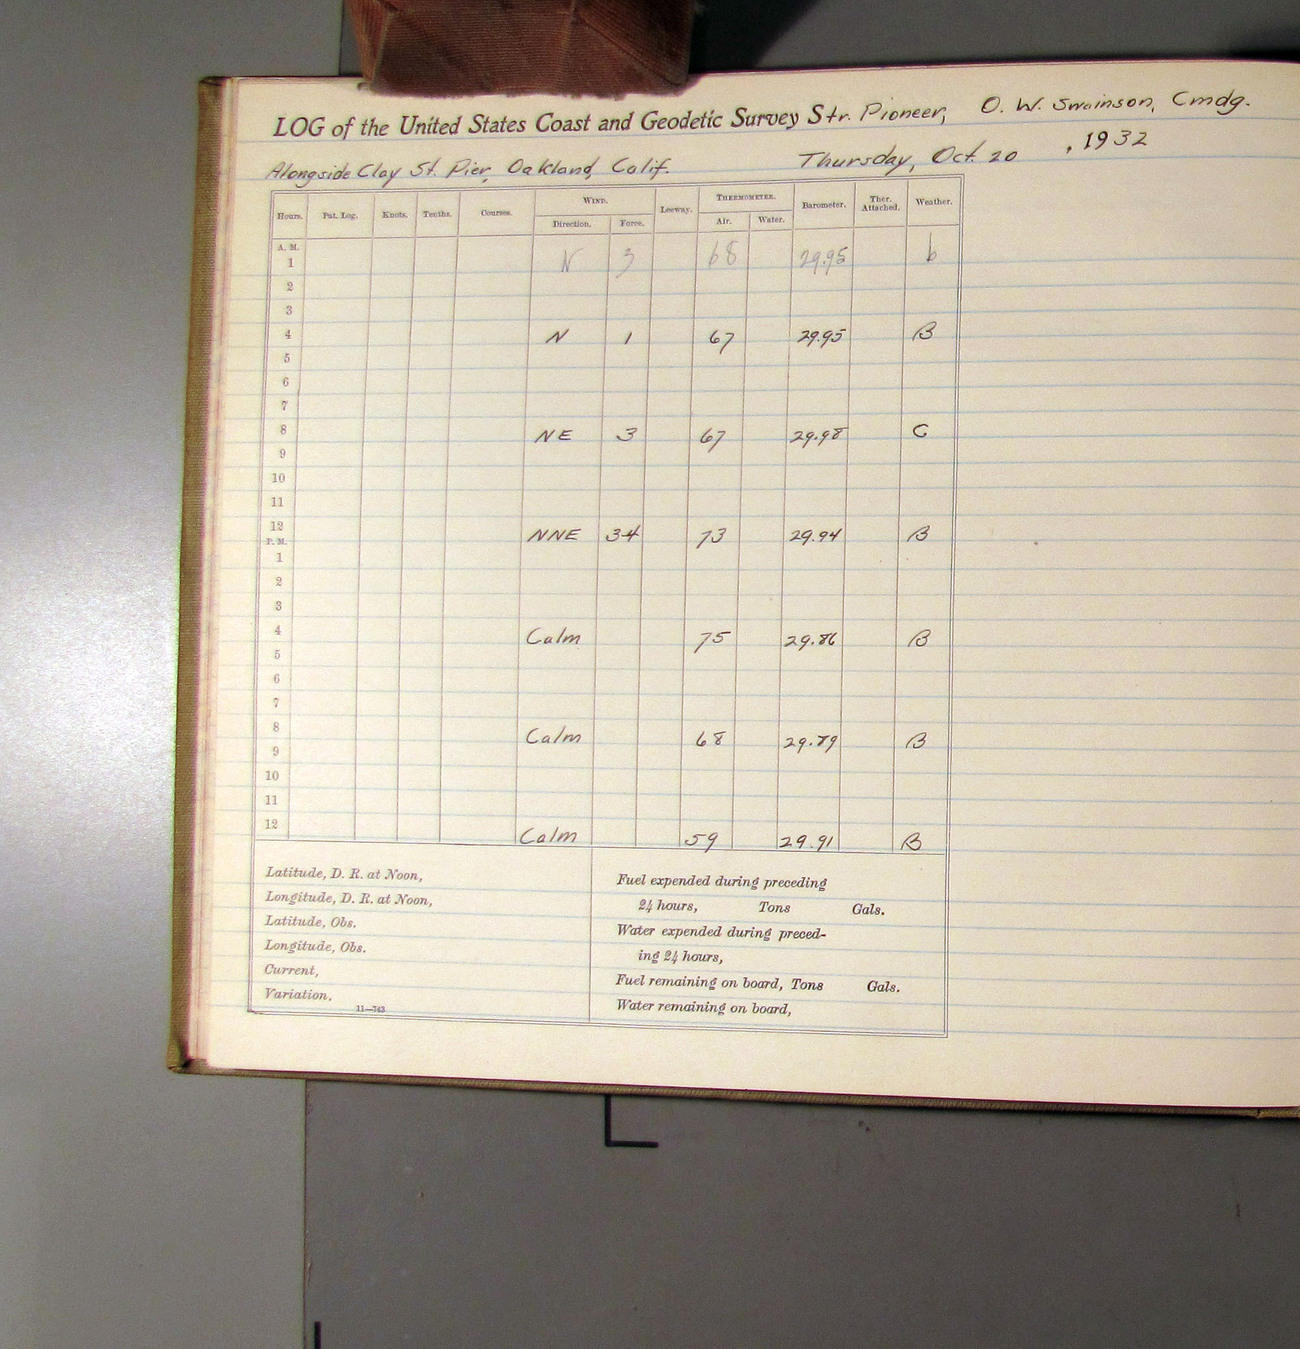 LOG of the United States Coast and Geodetic Survey Str. Pioneer, O. W. Swainson, Cmdg.
Alongside Clay St. Pier, Oakland, Calif. Thursday, Oct. 20, 1932
Hours. Pat. Log. Knots. Tenths. Courses. WIND. Leeway. THERMOMETER. Barometer. Ther. Attached. Weather.
Direction. Force. Air. Water.
A. M.
1 N 3 68 29.95 b
2
3
4 N 1 67 29.95 B
5
6
7
8 NE 3 67 29.98 C
9
10
11
12 NNE 34 73 29.94 B
P. M.
1
2
3
4 Calm 75 29.86 B
5
6
7
8 Calm 68 29.89 B
9
10
11
12 Calm 59 29.91 B
Latitude, D. R. at Noon,
Longitude, D. R. at Noon,
Latitude, Obs.
Longitude, Obs.
Current,
Variation.
11—763
Fuel expended during preceding
24 hours, Tons Gals.
Water expended during preced-
ing 24 hours,
Fuel remaining on board, Tons Gals.
Water remaining on board,